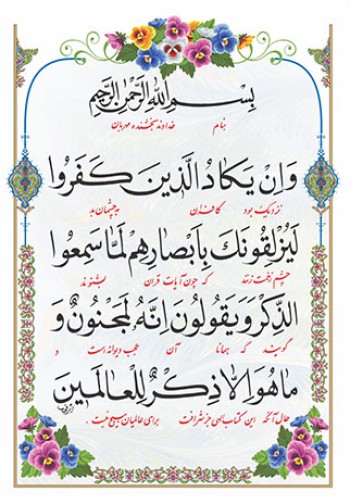 بِسْمِ اللهِ الرَّحْمٰنِ الرَّحِیْمِ
بنام خداوند بخشنده مهربان
وَاِنْ یَكَادُ الَّذینَ كَفَرُوا
نزدیک بود کافران به چشمان بد
لَیُزْلِقُونَكَ بِاَبْصَارِهِمْ لَمَّا سَمِعُوا
چشم زخمت زنند که چون آیات قرآن بشنوند
الذِّكْرَ وَ یَقُولُونَ اِنَّهُ لَمَجْنُونٌ وَ
گویند که همانا آن عجب دیوانه است و
مَا هُوَ اِلَّا ذِكْرٌ لِلْعَالَمینَ
حال آنکه این کتاب الهی جز شرافت برای عالمیان هیچ نیست